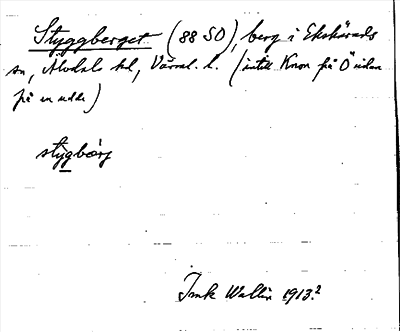 Styggberget (88 SO), berg i Ekshärads
sn, Älvdals hd, Värml. l. (intill Knon på Ö sidan
på en udde)
stygbärj
Ink Wallin 1913.2